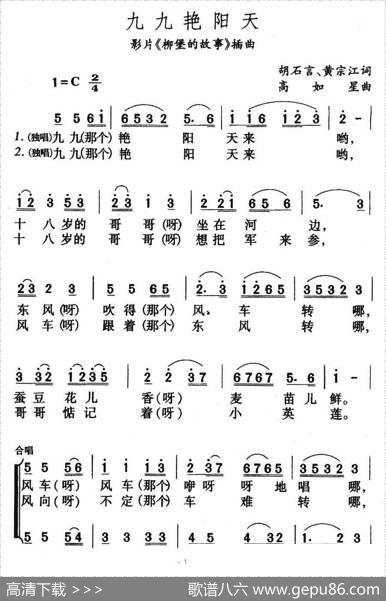 九九艳阳天
影片《柳堡的故事》插曲
胡石言、黄宗江词
1=C 2/4
高如星曲
5 5 6 1 | 6 5 3 2 5· 6 | 1 1 6 1 2 3 | 2 -- |
1.(独唱)九九(那个)艳阳天来哟,
2.(独唱)九九(那个)艳阳天来哟,
1 2 3 5 3 | 2· 3 1 | 2 2 1 6 5 6 | 5· 3 |
十八岁的哥哥(呀)坐在河边,
十八岁的哥哥(呀)想把军来参,
2 3 2 3 | 5 5 6 5 | 2· 3 1 2 6 5 | 3 5 3 2 3 1 |
东风(呀)吹得(那个)风车转哪,
风车(呀)跟着(那个)东风转哪,
3 3 2 1 2 3 5 | 2 1 2 3 7 | 6 7 6 7 5· 6 | 1 - |
蚕豆花儿香(呀)麦苗儿鲜。
哥哥惦记着(呀)小英莲。
合唱
5 5 5 6 | 1 1 1 3 | 2· 3 7 6 7 6 5 | 3 5 3 2 3 |
风车(呀)风车(那个)咿呀呀地唱哪,
风向(呀)不定(那个)车难转哪,
5 5 5 4 | 3 3 3 | 6· 3 2 3 2 | 5 3 2 3 |
- 1
高清下载 >>>
歌谱八六 www.gepu86.com